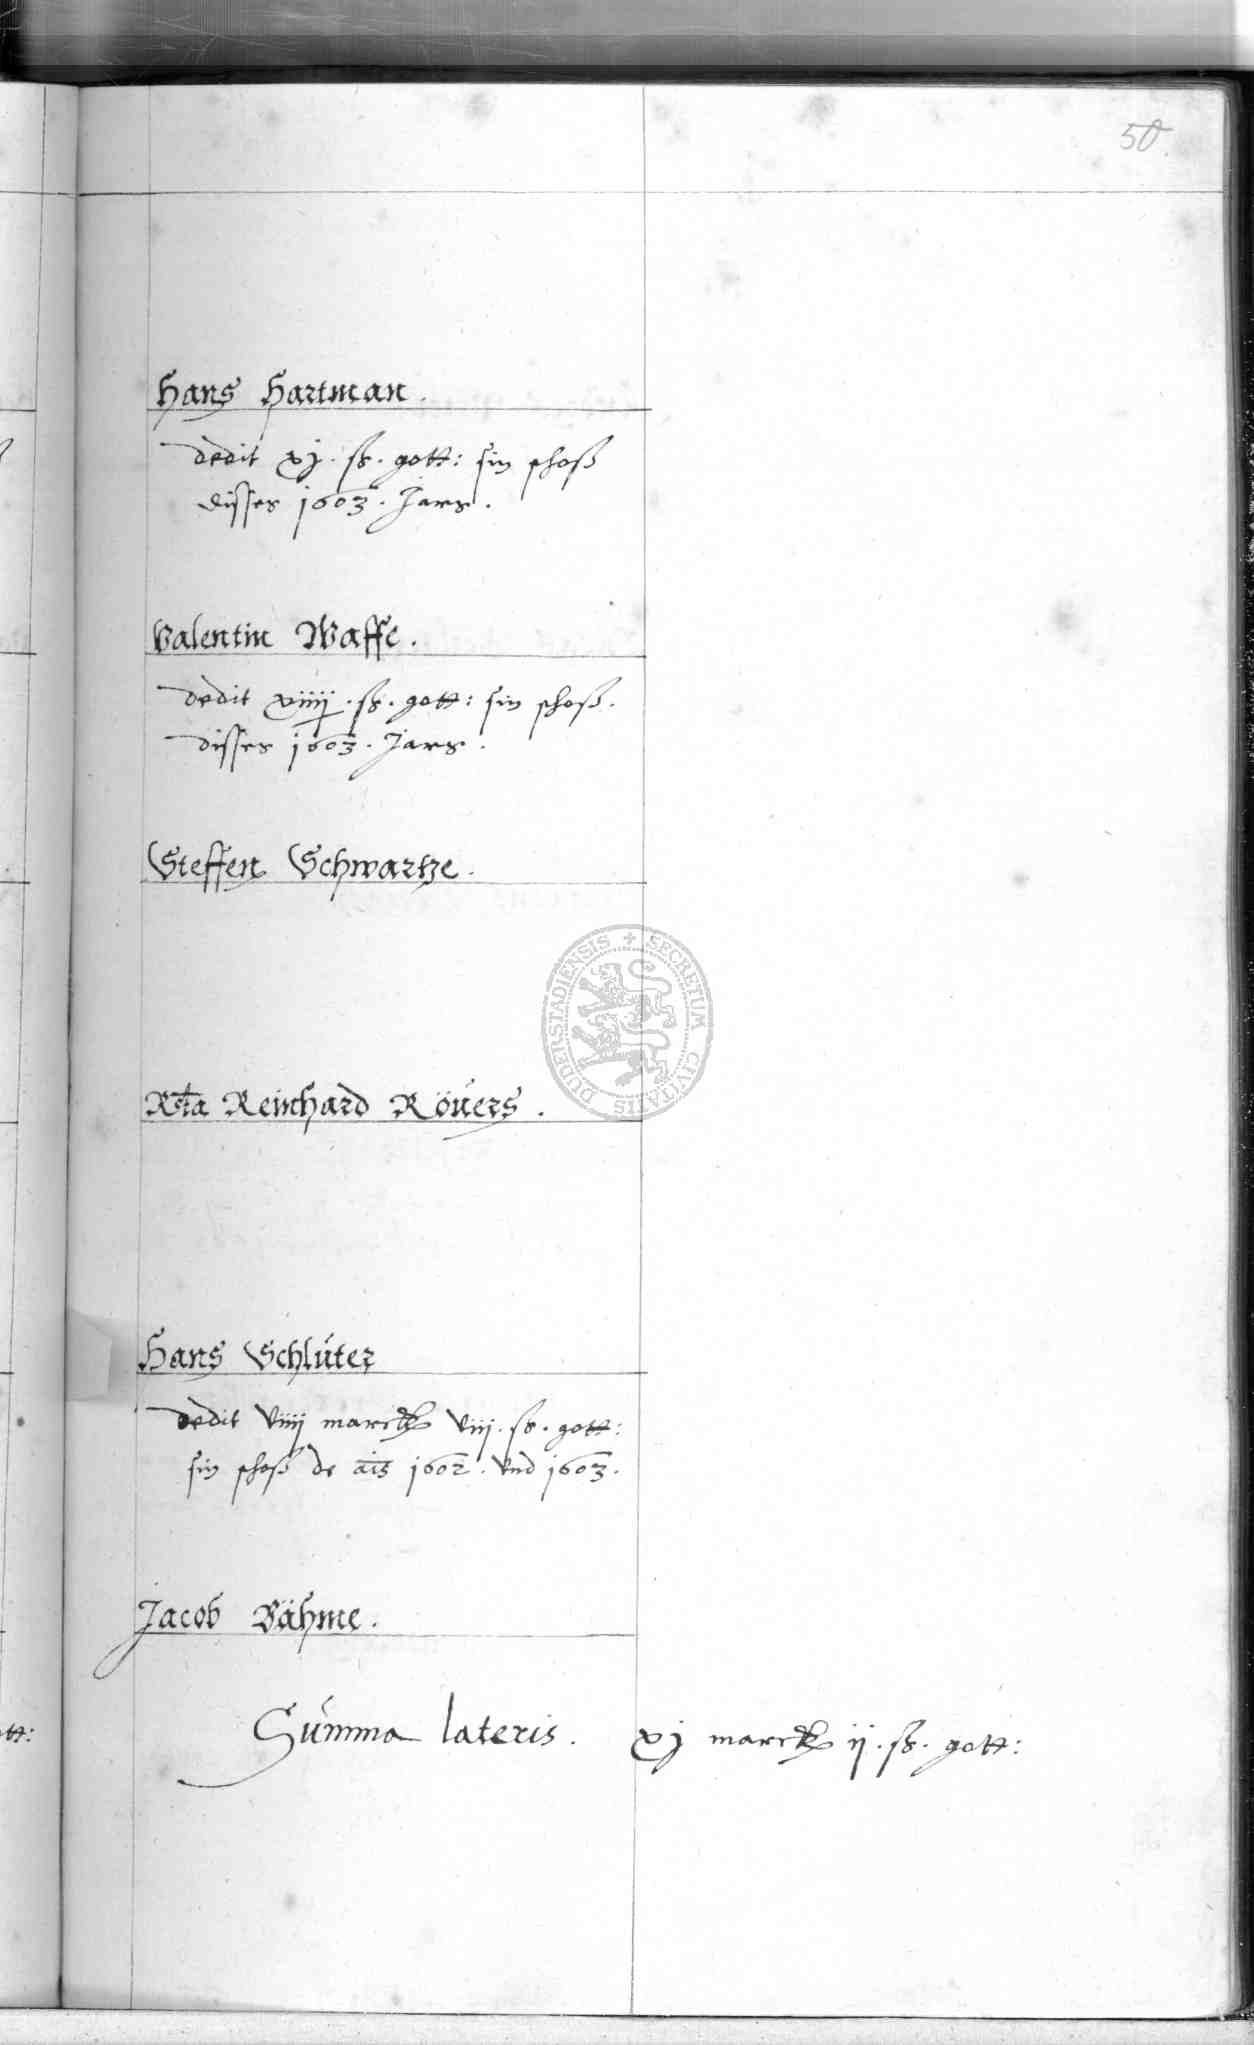 50
Hans Hartman.
dedit xj. ß. gott: sin schoß
disses 1603. Jars.
Valentin Waffe.
dedit xiiij. ß. gott: sin schoß.
disses 1603. Jars.
Steffen Schwartze.
Rcta Reinhard Röuers.
Hans Schluter
dedit viiij marck viij. ß. gott:
sin schoß de ais 1602. vnd 1603.
Jacob Bähme.
Summa lateris. xj marck ij. ß. gott:
SECRETUM CIVITATIS DUDERSTADIENSIS